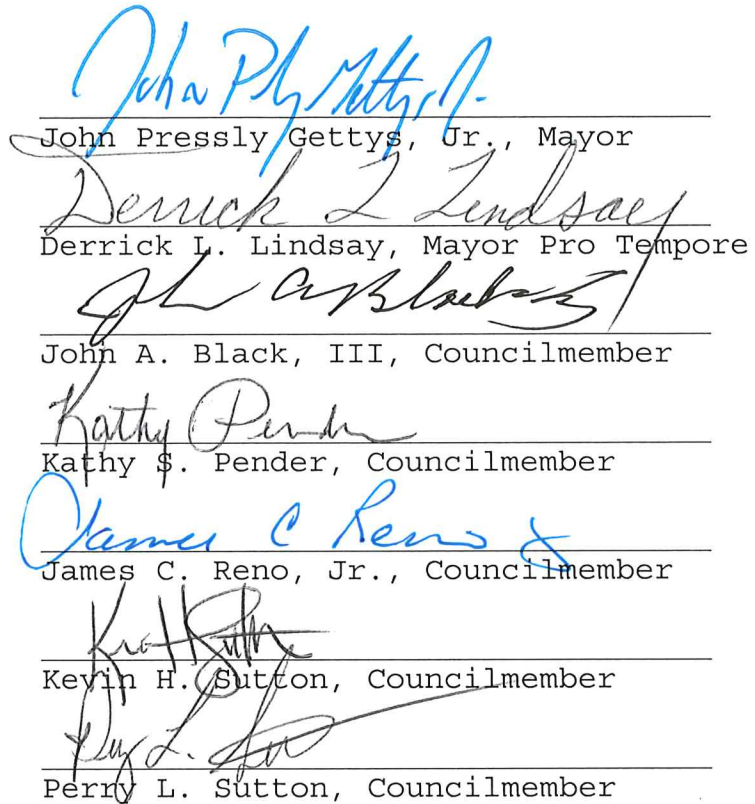 John P Gettys Jr.
John Pressly Gettys, Jr., Mayor
Derrick L Lindsay
Derrick L. Lindsay, Mayor Pro Tempore
John A Black
John A. Black, III, Councilmember
Kathy Pender
Kathy S. Pender, Councilmember
James C Reno Jr
James C. Reno, Jr., Councilmember
Kevin H. Sutton, Councilmember
Perry L.
Perry L. Sutton, Councilmember